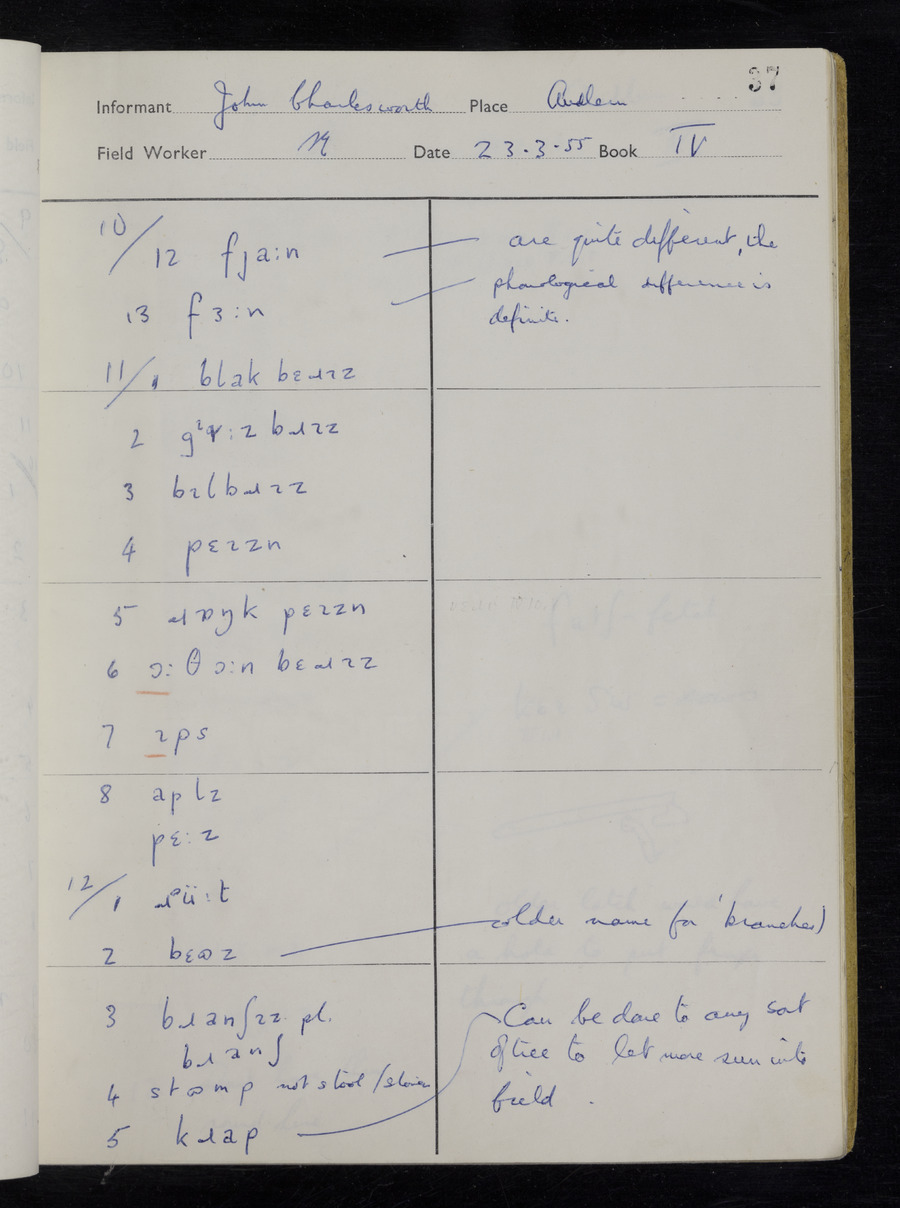 37
Informant John Charlesworth Place Audlem
Field Worker Date 23.3.55 Book IV
10/12 fɟaːn
are quite different, the
13 fɜːn
phonological difference is
definite.
11/1 blak bɛɹɪz
2 bɹɪz
3 bɪlbɹɪz
4 pɛɪzn
5 pɛɪzn
6 ɔːθɔːn bɛɹɪz
7 ɪps
8 aplz
pɛːz
12/1 ɹüːt
2 bɛɷz
older name for 'branches'
3 bɹanʃɪz pl.
Can be done to any sort
bɹanʃ
of tree to let more sun into
4 stɷmp not stool/
field.
5 kɹap